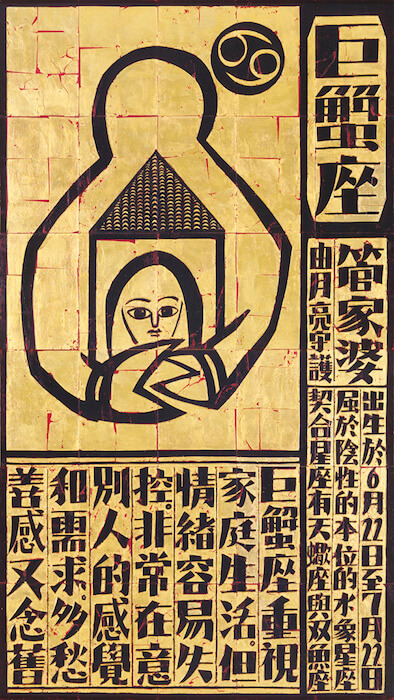 巨蟹座
管家婆
由月亮守護
出生於6月22日至7月22日
属於陰性的本位的水象星座
契合星座有天蠍座與双魚座
巨蟹座重視
家庭生活。但
情緒容易失
控。非常在意
別人的感覺
和需求。多愁
善感又念舊